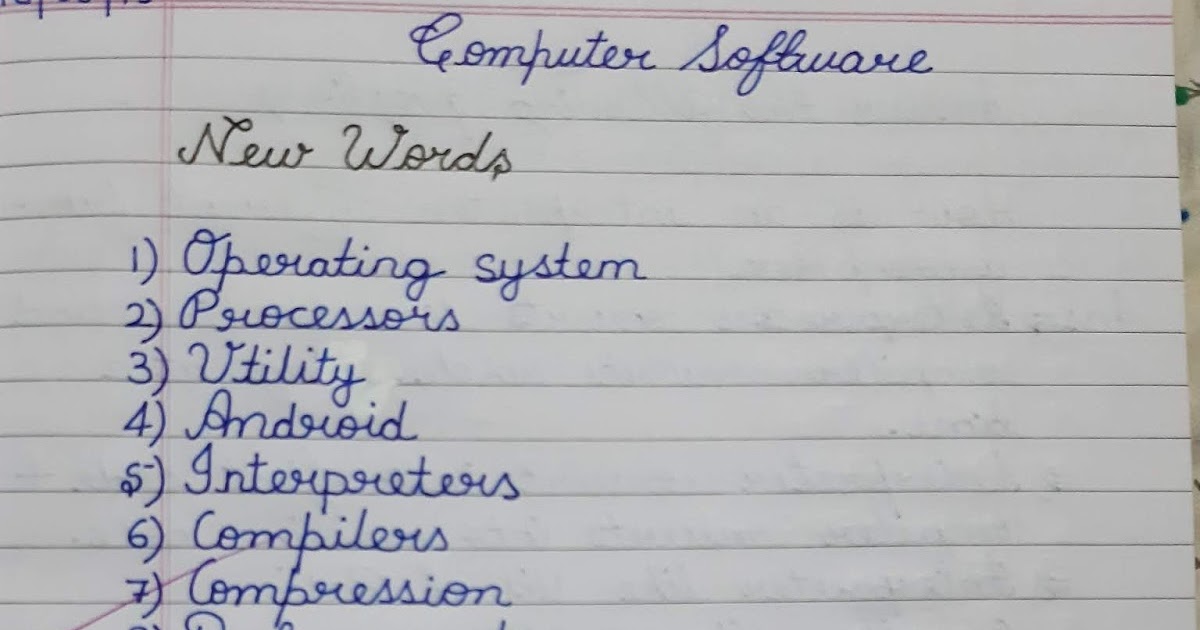 Computer Software
New Words
1) Operating system
2) Processors
3) Utility
4) Android
5) Interpreters
6) Compilers
7) Compression